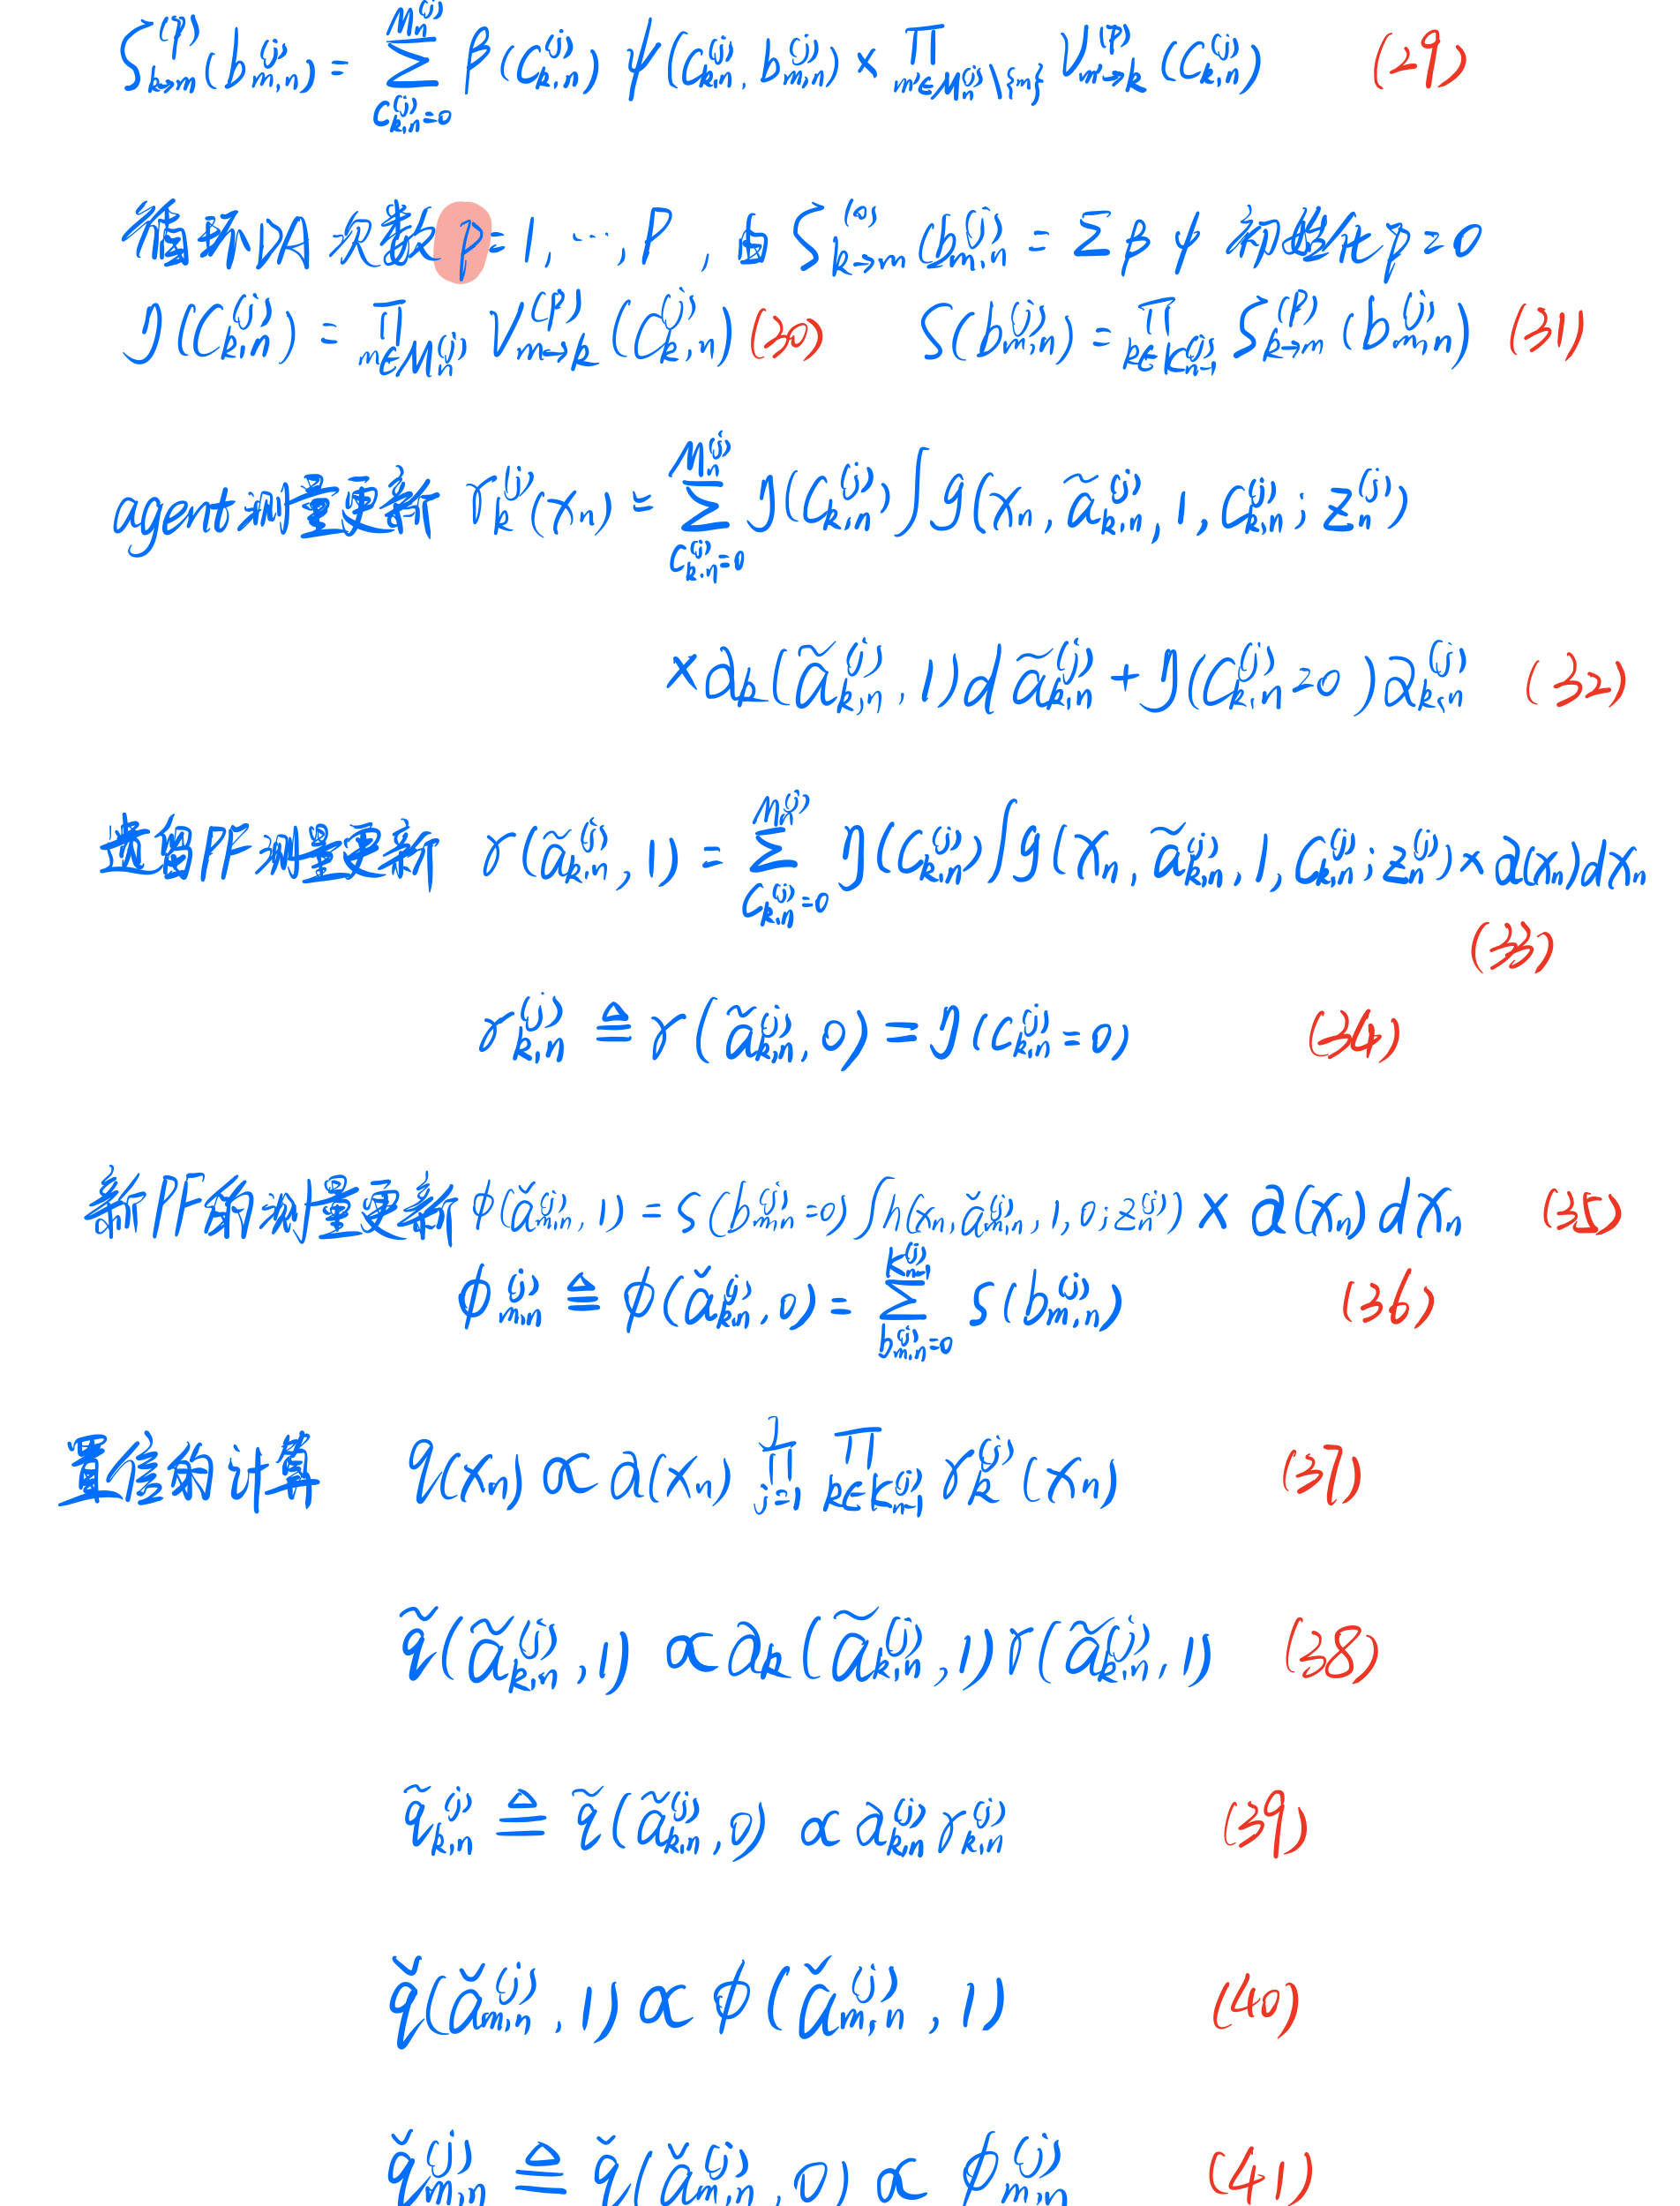 ς_{k→m}^{(p)}(b_{m,n}^{(j)}) = Σ_{c_{k,n}^{(j)}=0}^{M_n^{(j)}} β(c_{k,n}^{(j)}) ψ(c_{k,n}^{(j)}, b_{m,n}^{(j)}) × ∏_{m'∈M_n^{(j)}\{m}} ν_{m'→k}^{(p)}(c_{k,n}^{(j)}) (29)
循环DA次数p=1,…,P,由ς_{k→m}^{(0)}(b_{m,n}^{(j)} = Σβψ 初始化p=0
η(c_{k,n}^{(j)}) = ∏_{m∈M_n^{(j)}} ν_{m→k}^{(p)}(c_{k,n}^{(j)}) (30) ς(b_{m,n}^{(j)}) = ∏_{k∈K_{n-1}^{(j)}} ς_{k→m}^{(p)}(b_{m,n}^{(j)}) (31)
agent测量更新 γ_k^{(j)}(x_n) = Σ_{c_{k,n}^{(j)}=0}^{M_n^{(j)}} η(c_{k,n}^{(j)}) ∫g(x_n, ã_{k,n}^{(j)}, 1, c_{k,n}^{(j)}; z_n^{(j)})
× α_k(ã_{k,n}^{(j)}, 1) d ã_{k,n}^{(j)} + η(c_{k,n}^{(j)}=0) α_{k,n}^{(j)} (32)
遗留PF测量更新 γ(ã_{k,n}^{(j)}, 1) = Σ_{c_{k,n}^{(j)}=0}^{M_n^{(j)}} η(c_{k,n}^{(j)}) ∫g(x_n, ã_{k,n}^{(j)}, 1, c_{k,n}^{(j)}; z_n^{(j)}) × α(x_n) dx_n
(33)
γ_{k,n}^{(j)} ≜ γ(ã_{k,n}^{(j)}, 0) = η(c_{k,n}^{(j)}=0) (34)
新PF的测量更新 φ(ǎ_{m,n}^{(j)}, 1) = ς(b_{m,n}^{(j)}=0) ∫h(x_n, ǎ_{m,n}^{(j)}, 1, 0; z_n^{(j)}) × α(x_n) dx_n (35)
φ_{m,n}^{(j)} ≜ φ(ǎ_{k,n}^{(j)}, 0) = Σ_{b_{m,n}^{(j)}=0}^{K_{n-1}^{(j)}} ς(b_{m,n}^{(j)}) (36)
置信的计算 q(x_n) ∝ α(x_n) ∏_{j=1}^{J} ∏_{k∈K_{n-1}^{(j)}} γ_k^{(j)}(x_n) (37)
q̃(ã_{k,n}^{(j)}, 1) ∝ α_k(ã_{k,n}^{(j)}, 1) γ(ã_{k,n}^{(j)}, 1) (38)
q̃_{k,n}^{(j)} ≜ q̃(ã_{k,n}^{(j)}, 0) ∝ α_{k,n}^{(j)} γ_{k,n}^{(j)} (39)
q̌(ǎ_{m,n}^{(j)}, 1) ∝ φ(ǎ_{m,n}^{(j)}, 1) (40)
q̌_{m,n}^{(j)} ≜ q̌(ǎ_{m,n}^{(j)}, 0) ∝ φ_{m,n}^{(j)} (41)